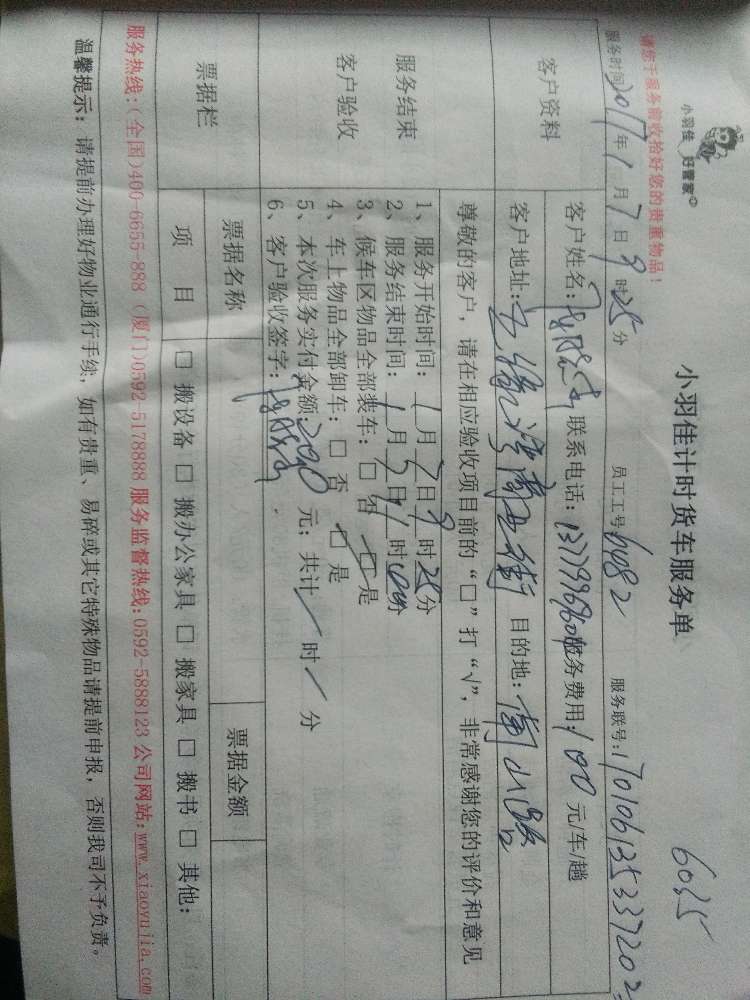 小羽佳 好管家
请您于服务前收拾好您的贵重物品！
小羽佳计时货车服务单
6035
服务时间2017年1月7日9时25分 员工工号 服务联号:
客户资料
客户姓名: 联系电话: 服务费用:100元/车/趟
客户地址: 目的地:南山路
尊敬的客户，请在相应验收项目前的“□”打“√”，非常感谢您的评价和意见
服务结束
客户验收
1、服务开始时间:1月7日9时25分
2、服务结束时间:1月7日 时 分
3、候车区物品全部装车:□ 否 □ 是
4、车上物品全部卸车:□ 否 □ 是
5、本次服务实付金额: 元；共计/时/分
6、客户验收签字:
票据栏
票据名称 票据金额
项 目 □ 搬设备 □ 搬办公家具 □ 搬家具 □ 搬书 □ 其他:
服务热线:(全国)400-6655-888 (厦门)0592-5178888 服务监督热线:0592-5888123 公司网站:www.xiaoyujia.com
温馨提示: 请提前办理好物业通行手续，如有贵重、易碎或其它特殊物品请提前申报，否则我司不予负责。